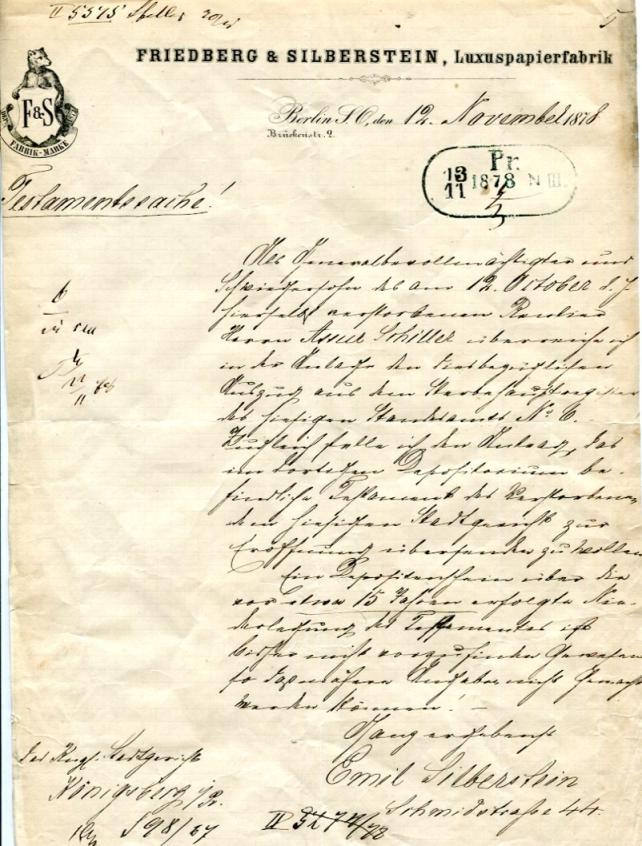 II 5575 Schiller
5
FRIEDBERG & SILBERSTEIN, Luxuspapierfabrik
F&S
FABRIK-MARKE
Berlin S.O., den 12. November 1878
Brückenstr. 2.
Pr.
13/11 1878 N III.
Testamentssache!
Als Generalbevollmächtigter und
Schwiegersohn des am 12. October d. J.
hierselbst verstorbenen Rentier
Herrn Assur Schiller überreiche ich
in der Anlage den
Auszug aus dem Sterbehauptregister
des hiesigen Standesamts No. 6.
Zugleich stelle ich den Antrag, das
im dortigen Depositorium be-
findliche Testament des Verstorbenen
dem hiesigen Stadtgericht zur
Eröffnung übersenden zu wollen.
Ein Depositenschein über die
vor etwa 15 Jahren erfolgte Nie-
derlegung des Testamentes ist
bisher nicht vorzufinden gewesen
so daß nähere Angaben nicht gemacht
werden können! –
Ganz ergebenst
Emil Silberstein
Schmidstraße 44.
Das Kngl. Stadtgericht
Königsberg i/Pr.